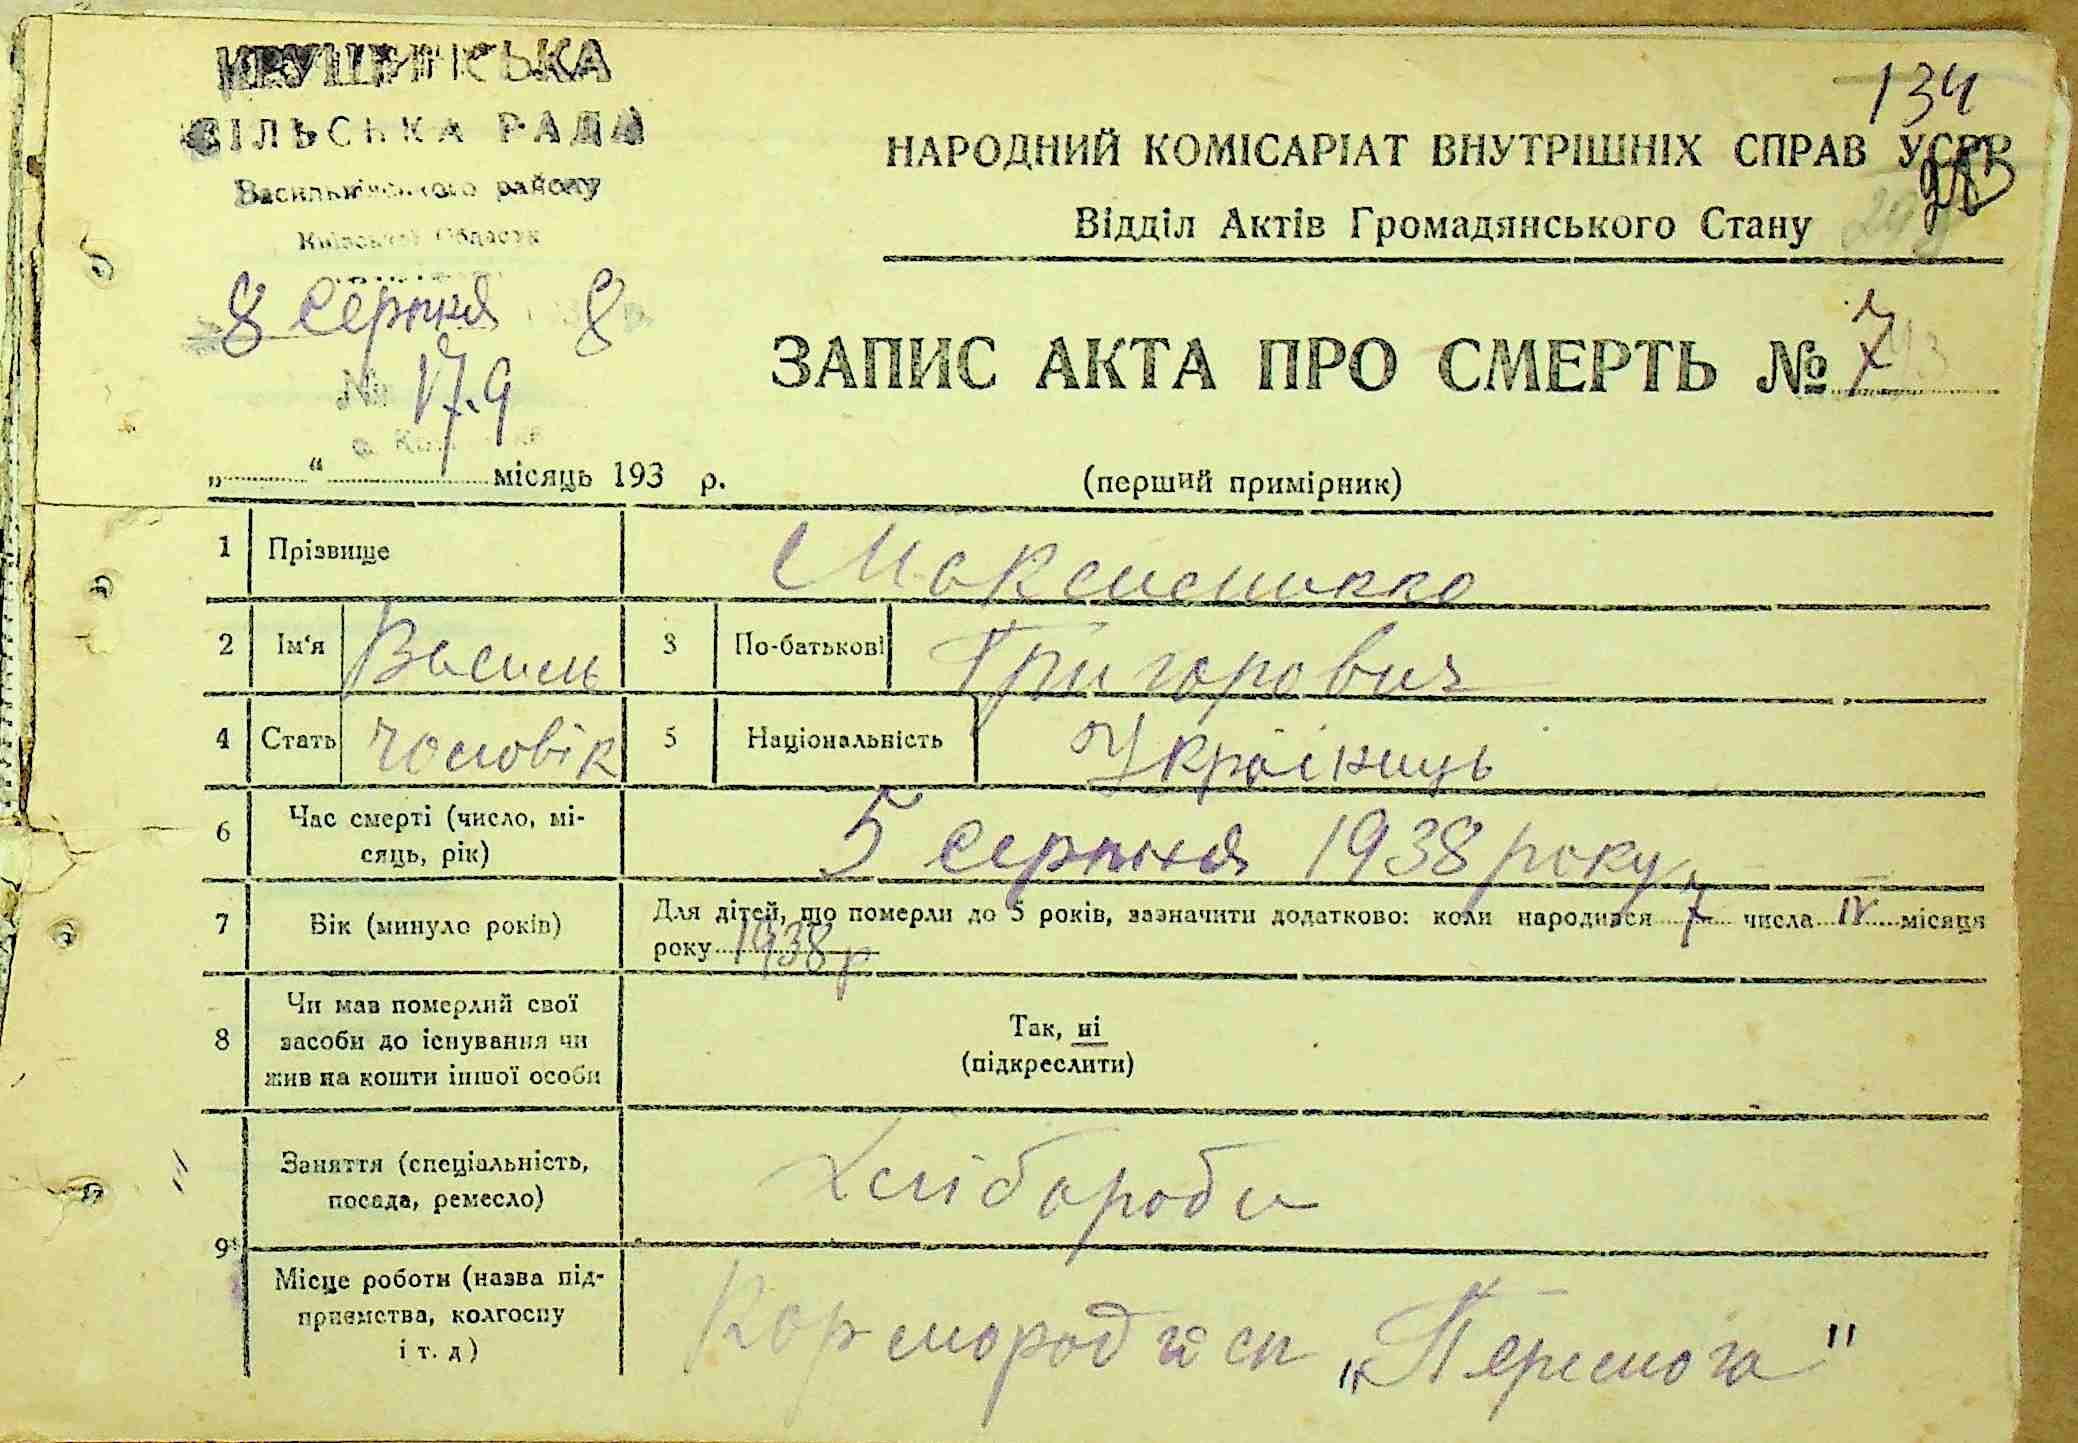 КРУЩИНСЬКА
СІЛЬСЬКА РАДА
Васильківського району
Київської Області
8 серпня 8
№ 179
134
НАРОДНИЙ КОМІСАРІАТ ВНУТРІШНІХ СПРАВ УСРР
Відділ Актів Громадянського Стану
ЗАПИС АКТА ПРО СМЕРТЬ № 7
„ “ місяць 193 р.
(перший примірник)
1 Прізвище
2 Ім‘я Василь 3 По-батькові Григорович
4 Стать чоловік 5 Національність Українець
6 Час смерті (число, мі-
сяць, рік) 5 серпня 1938 року
7 Вік (минуло років) Для дітей, що померли до 5 років, зазначити додатково: коли народився 7 числа IV місяця
року 1938 р
8 Чи мав померлий свої
засоби до існування чи
жив на кошти іншої особи
Так, ні
(підкреслити)
9 Заняття (спеціальність,
посада, ремесло) Хлібороби
Місце роботи (назва під-
приємства, колгоспу
і т. д)
„Перемога"